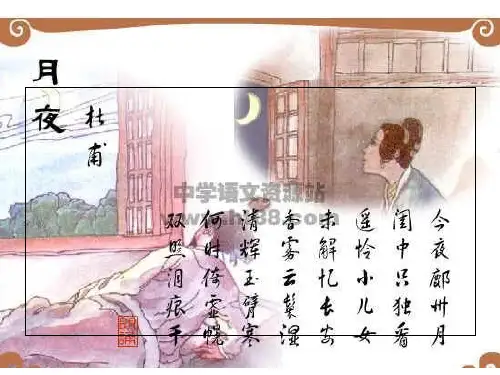 月夜
杜甫
今夜鄜州月
闺中只独看
遥怜小儿女
未解忆长安
香雾云鬟湿
清辉玉臂寒
何时倚虚幌
双照泪痕干
中学语文资源站